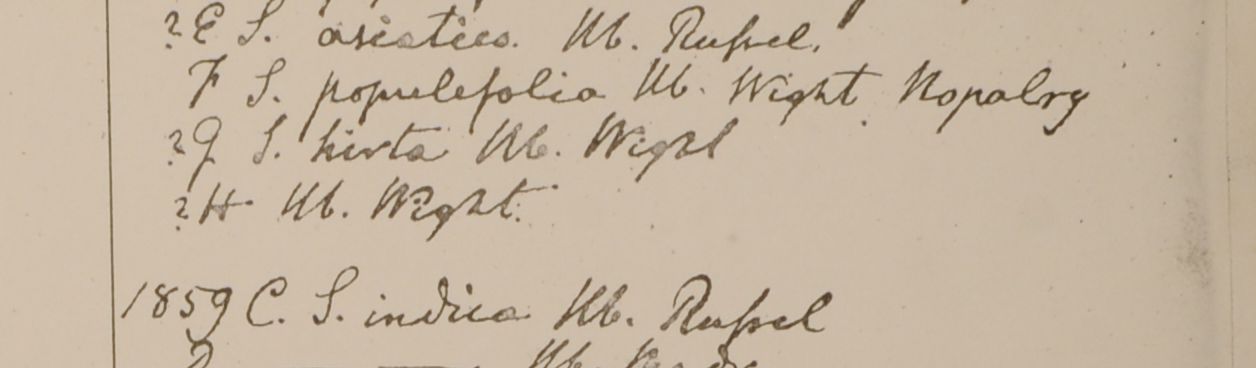 ? E S. asiatica. Hb. Russel.
F S. populefolia Hb. Wight Nopalry
? G S. hirta Hb. Wight
? H Hb. Wight.
1859 C. S. indica Hb. Russel
Hb.